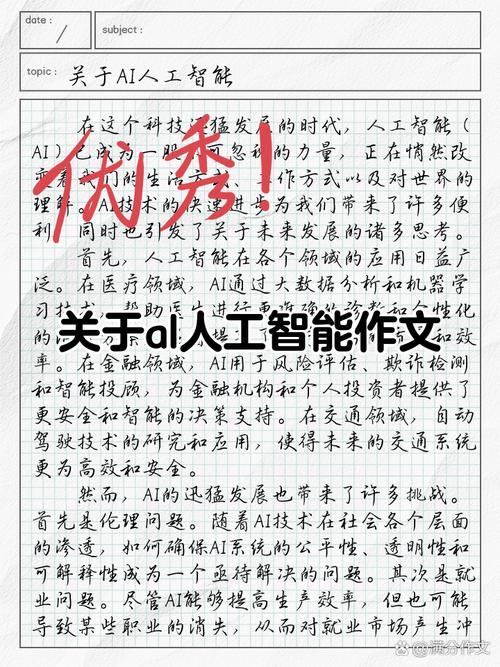 date:
subject:
topic: 关于AI人工智能
优秀!
在这个科技迅猛发展的时代，人工智能（
AI）已成为一股不可忽视的力量，正在悄然改
变着我们的生活方式、工作方式以及对世界的
理解。AI技术的快速进步为我们带来了许多便
利，同时也引发了关于未来发展的诸多思考。
首先，人工智能在各个领域的应用日益广
泛。在医疗领域，AI通过大数据分析和机器学
习技术，帮助医生进行更准确的诊断和个性化
的 和效
关于aI人工智能作文
率。在金融领域，AI用于风险评估、欺诈检测
和智能投顾，为金融机构和个人投资者提供了
更安全和智能的决策支持。在交通领域，自动
驾驶技术的研究和应用，使得未来的交通系统
更为高效和安全。
然而，AI的迅猛发展也带来了许多挑战。
首先是伦理问题。随着AI技术在社会各个层面
的渗透，如何确保AI系统的公平性、透明性和
可解释性成为一个亟待解决的问题。其次是就
业问题。尽管AI能够提高生产效率，但也可能
导致某些职业的消失，从而对就业市场产生冲
@满分作文